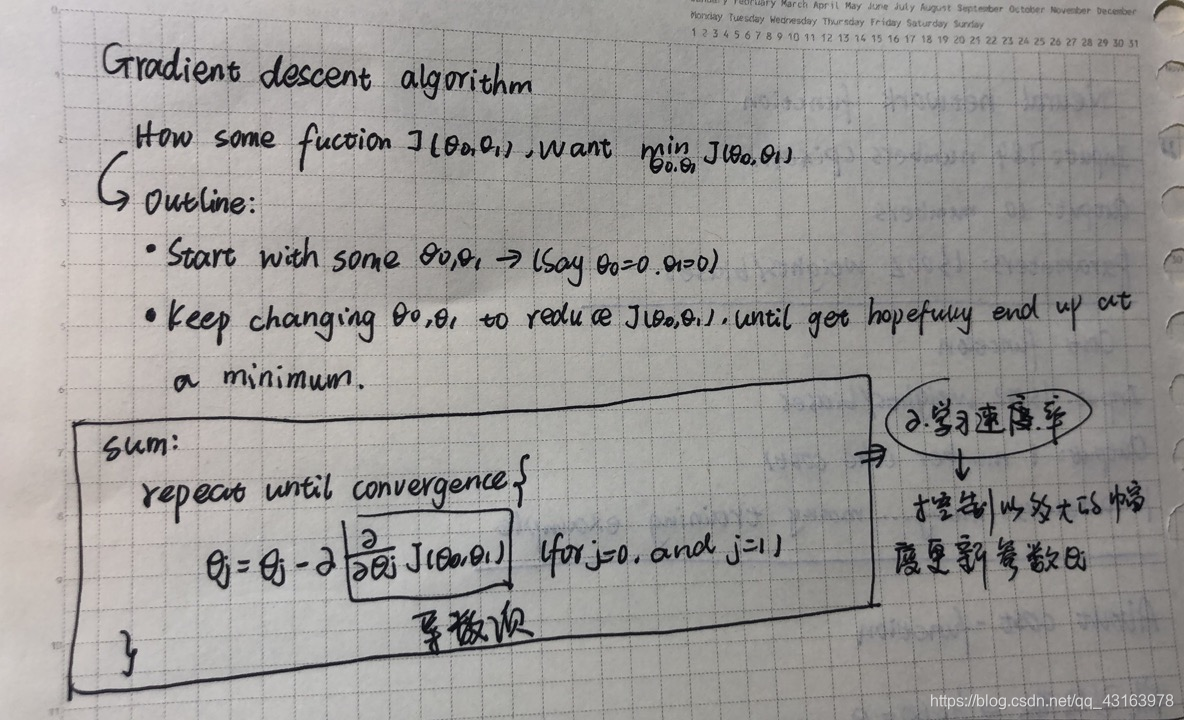 January February March April May June July August September October November December
Monday Tuesday Wednesday Thursday Friday Saturday Sunday
1 2 3 4 5 6 7 8 9 10 11 12 13 14 15 16 17 18 19 20 21 22 23 24 25 26 27 28 29 30 31
Gradient descent algorithm
How some fuction J(θ0,θ1), want min J(θ0,θ1)
θ0,θ1
Outline:
• Start with some θ0,θ1 → (Say θ0=0.θ1=0)
• Keep changing θ0,θ1 to reduce J(θ0,θ1), until get hopefully end up at
a minimum.
sum:
repeat until convergence{
θj = θj - ∂ ∂/∂θj J(θ0,θ1) (for j=0, and j=1)
导数项
}
⇒ ∂.学习速度.率
↓
控制以多大的幅
度更新参数θj
https://blog.csdn.net/qq_43163978